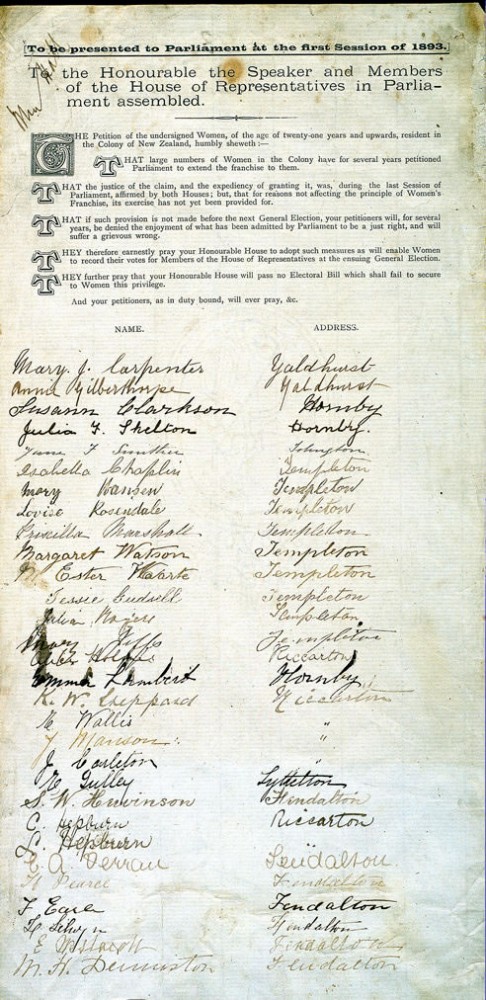 [To be presented to Parliament at the first Session of 1893.]
To the Honourable the Speaker and Members
of the House of Representatives in Parlia-
ment assembled.
THE Petition of the undersigned Women, of the age of twenty-one years and upwards, resident in
the Colony of New Zealand, humbly sheweth :—
THAT large numbers of Women in the Colony have for several years petitioned
Parliament to extend the franchise to them.
THAT the justice of the claim, and the expediency of granting it, was, during the last Session of
Parliament, affirmed by both Houses; but, that for reasons not affecting the principle of Women's
Franchise, its exercise has not yet been provided for.
THAT if such provision is not made before the next General Election, your petitioners will, for several
years, be denied the enjoyment of what has been admitted by Parliament to be a just right, and will
suffer a grievous wrong.
THEY therefore earnestly pray your Honourable House to adopt such measures as will enable Women
to record their votes for Members of the House of Representatives at the ensuing General Election.
THEY further pray that your Honourable House will pass no Electoral Bill which shall fail to secure
to Women this privilege.
And your petitioners, as in duty bound, will ever pray, &c.
NAME. ADDRESS.
Mary J. Carpenter Yaldhurst
Annie Gilberthorpe Yaldhurst
Susann Clarkson Hornby
Julia F. Shelton Hornby.
Isabella Chaplin Templeton
Mary Hansen Templeton
Lovise Rosendale Templeton
Priscilla Marshall Templeton
Margaret Watson Templeton
Ester Templeton
Jessie Templeton
Templeton
Mary Templeton
Riccarton
Emma Lambert Hornby
K. W. Sheppard Riccarton
Wallis "
Manson "
J. Carleton
Gulley Lyttelton
S. W. Hewinson Fendalton
C. Hepburn Riccarton
Hepburn
Fendalton
Pearce Fendalton
Fendalton
Fendalton
E Fendalton
M. H. Fendalton